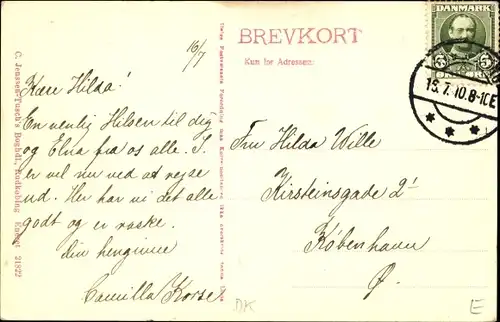 16/7
Kære Hilda!
En venlig Hilsen til dig
og Elna fra os alle. I
er vel nu ved at rejse
ud. Her har vi det alle
godt og er raske.
din hengivne
Camilla Korse
BREVKORT
Kun for Adressen.
DANMARK
5 5
16.7.10.8-10E
Fru Hilda Wille
Kirsteinsgade 2¹
København
Ø.
C. Jenssen-Tusch's Boghdl., Rudkøbing Eneret 21822
DK
E